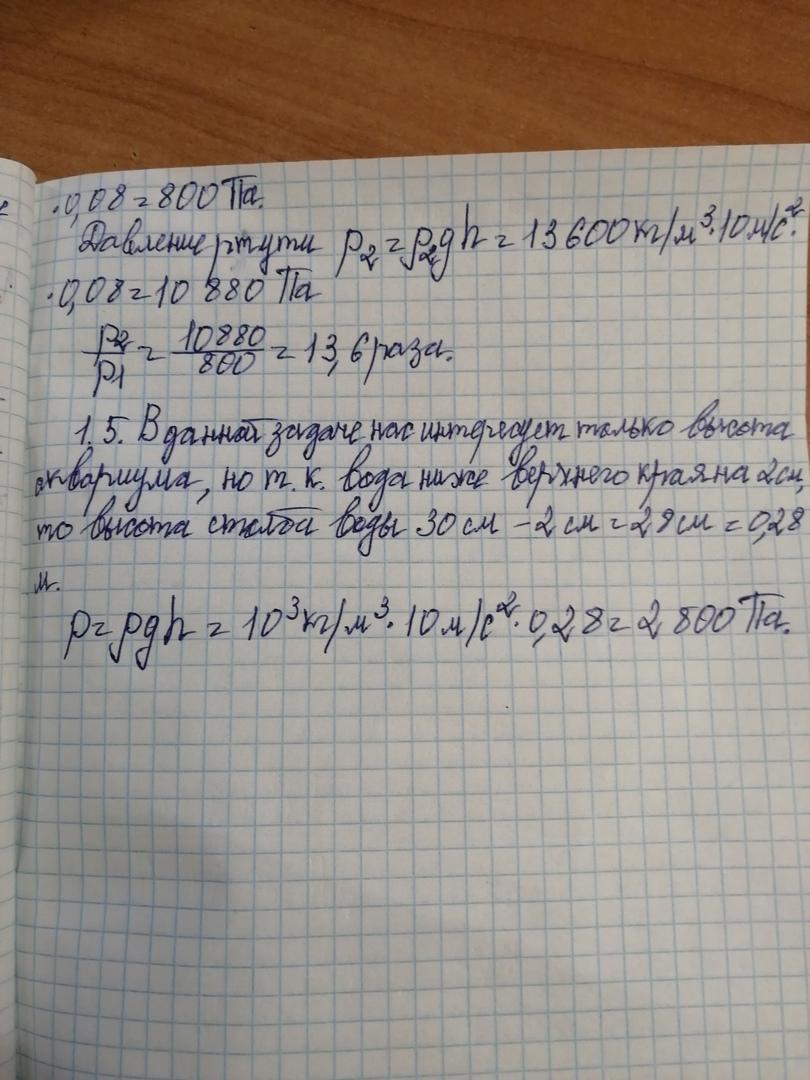 ·0,08=800 Па.
Давление ртути p₂=ρ₂gh=13600кг/м³·10м/с²·
·0,08=10 880 Па
p₂/p₁=10880/800=13,6 раза.
1.5. В данной задаче нас интересует только высота
аквариума, но т.к. вода ниже верхнего края на 2см,
то высота столба воды 30 см - 2 см = 28 см = 0,28
м.
p=ρgh=10³кг/м³·10м/с²·0,28=2 800 Па.